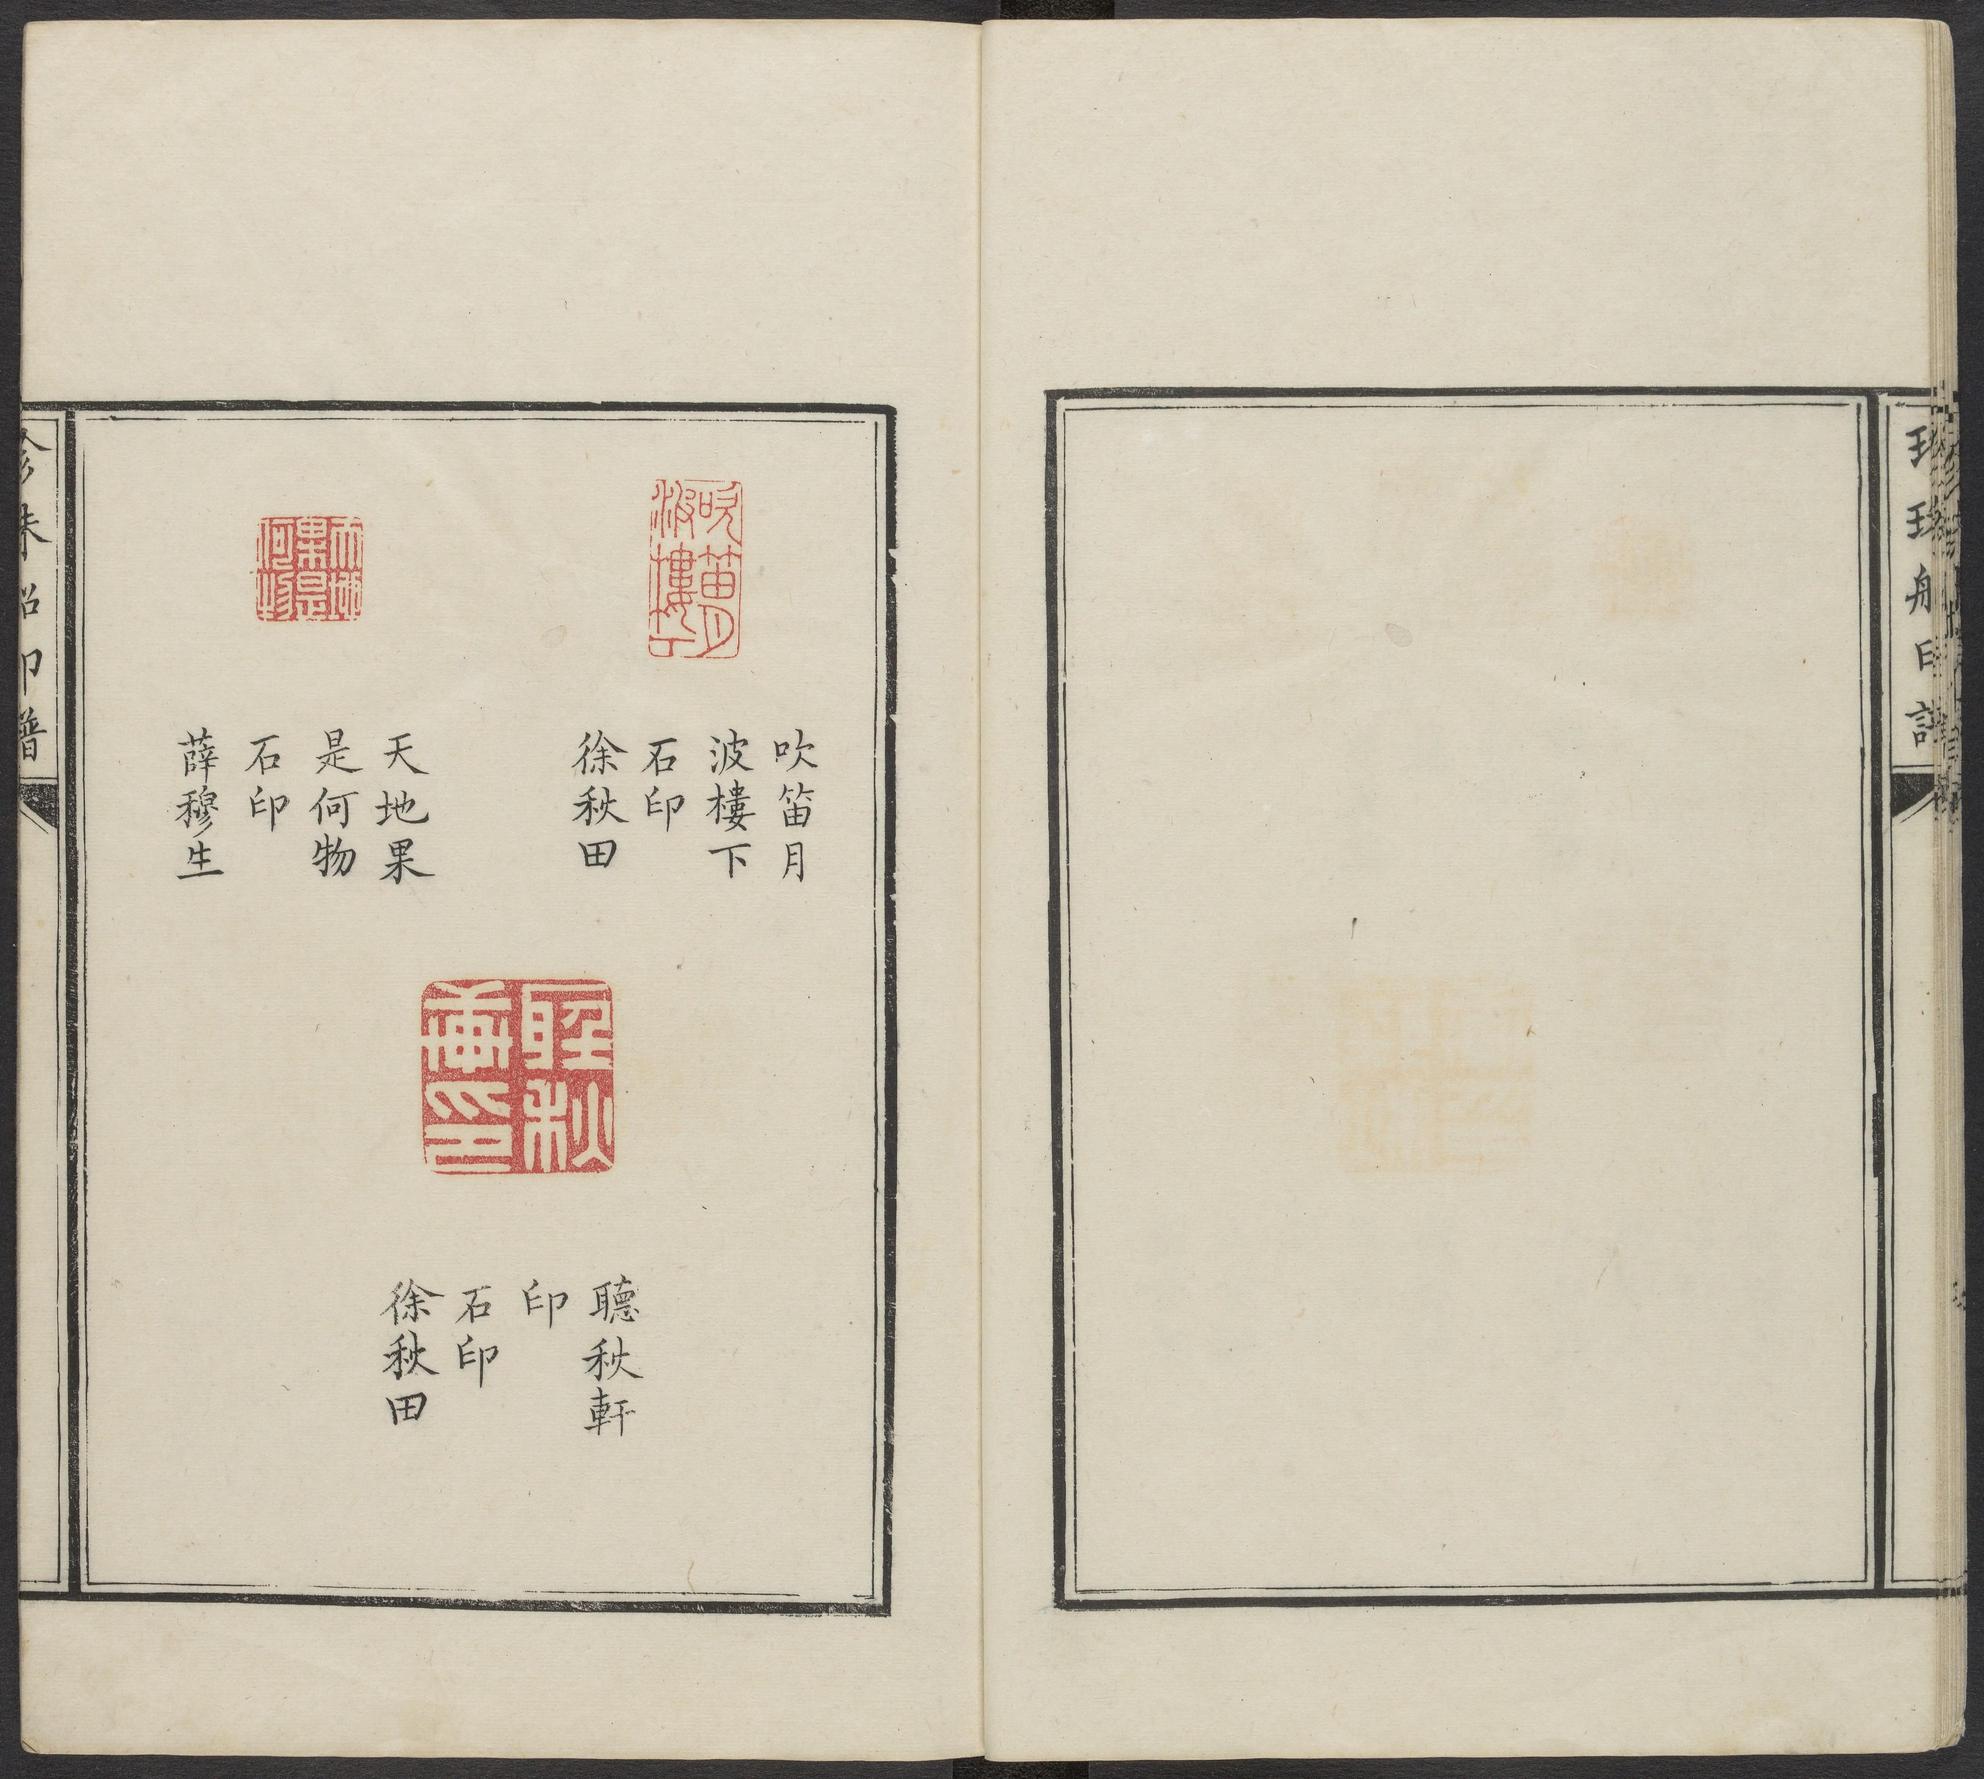 珍珠船印譜
吹笛月
波樓下
石印
徐秋田
天地果
是何物
石印
薛穆生
聽秋軒
印
石印
徐秋田
珍珠船印譜